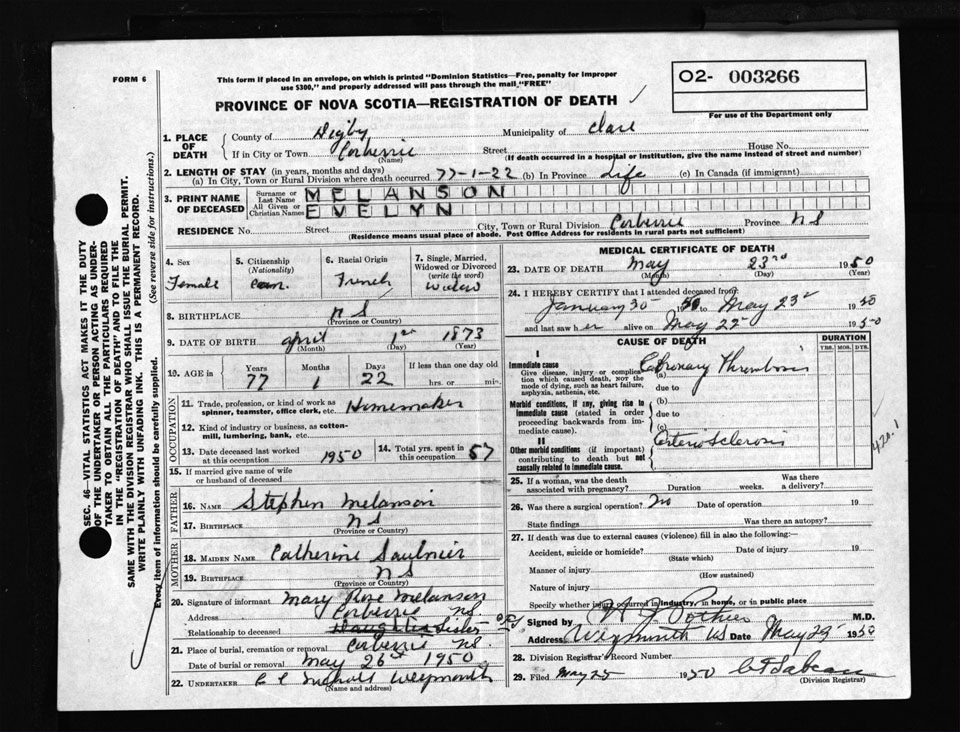 FORM 6
This form if placed in an envelope, on which is printed "Dominion Statistics—Free, penalty for improper
use $300," and properly addressed will pass through the mail, "FREE"
PROVINCE OF NOVA SCOTIA—REGISTRATION OF DEATH ✓
O2- 003266
For use of the Department only
1. PLACE OF DEATH
County of Digby Municipality of Clare
If in City or Town Corberrie (Name) Street House No.
(If death occurred in a hospital or institution, give the name instead of street and number)
2. LENGTH OF STAY (in years, months and days)
(a) In City, Town or Rural Division where death occurred 77-1-22 (b) In Province Life (c) In Canada (if immigrant)
3. PRINT NAME OF DECEASED
Surname or Last Name MELANSON
All Given or Christian Names EVELYN
RESIDENCE No. Street City, Town or Rural Division Corberrie Province NS
(Residence means usual place of abode. Post Office Address for residents in rural parts not sufficient)
4. Sex Female
5. Citizenship (Nationality) Can.
6. Racial Origin French
7. Single, Married, Widowed or Divorced (write the word) Widow
8. BIRTHPLACE NS
(Province or Country)
9. DATE OF BIRTH April 1st 1873
(Month) (Day) (Year)
10. AGE in Years 77 Months 1 Days 22 If less than one day old hrs. or min.
OCCUPATION
11. Trade, profession, or kind of work as spinner, teamster, office clerk, etc. Homemaker
12. Kind of industry or business, as cotton-mill, lumbering, bank, etc.
13. Date deceased last worked at this occupation 1950
14. Total yrs. spent in this occupation 57
15. If married give name of wife or husband of deceased
FATHER
16. NAME Stephen Melanson
17. BIRTHPLACE NS
(Province or Country)
MOTHER
18. MAIDEN NAME Catherine Saulnier
19. BIRTHPLACE NS
(Province or Country)
20. Signature of informant Mary Rose Melanson
Address Corberrie NS
Relationship to deceased Daughter Sister
21. Place of burial, cremation or removal Corberrie NS.
Date of burial or removal May 26th 1950
22. UNDERTAKER Weymouth
(Name and address)
MEDICAL CERTIFICATE OF DEATH
23. DATE OF DEATH May 23rd 1950
(Month) (Day) (Year)
24. I HEREBY CERTIFY that I attended deceased from:
January 30 50 to May 23rd 1950
and last saw her alive on May 22 1950
CAUSE OF DEATH
DURATION
YRS. MOS. DYS.
I
Immediate cause
Give disease, injury or complication which caused death, NOT the mode of dying, such as heart failure, asphyxia, asthenia, etc.
(a) Coronary Thrombosis
due to
Morbid conditions, if any, giving rise to immediate cause (stated in order proceeding backwards from immediate cause).
(b)
due to
(c)
II
Other morbid conditions (if important) contributing to death but not causally related to immediate cause.
Arteriosclerosis
420.1
25. If a woman, was the death associated with pregnancy? Duration weeks. Was there a delivery?
26. Was there a surgical operation? No Date of operation 19
State findings Was there an autopsy?
27. If death was due to external causes (violence) fill in also the following:—
Accident, suicide or homicide? Date of injury 19
(State which)
Manner of injury
(How sustained)
Nature of injury
Specify whether injury occurred in industry, in home, or in public place
Signed by Pothier M.D.
Address Weymouth NS Date May 23rd 1950
28. Division Registrar's Record Number
29. Filed May 25 1950
(Division Registrar)
SEC. 46—VITAL STATISTICS ACT MAKES IT THE DUTY
OF THE UNDERTAKER OR PERSON ACTING AS UNDER-
TAKER TO OBTAIN ALL THE PARTICULARS REQUIRED
IN THE "REGISTRATION OF DEATH" AND TO FILE THE
SAME WITH THE DIVISION REGISTRAR WHO SHALL ISSUE THE BURIAL PERMIT.
WRITE PLAINLY WITH UNFADING INK. THIS IS A PERMANENT RECORD.
Every item of information should be carefully supplied. (See reverse side for instructions.)